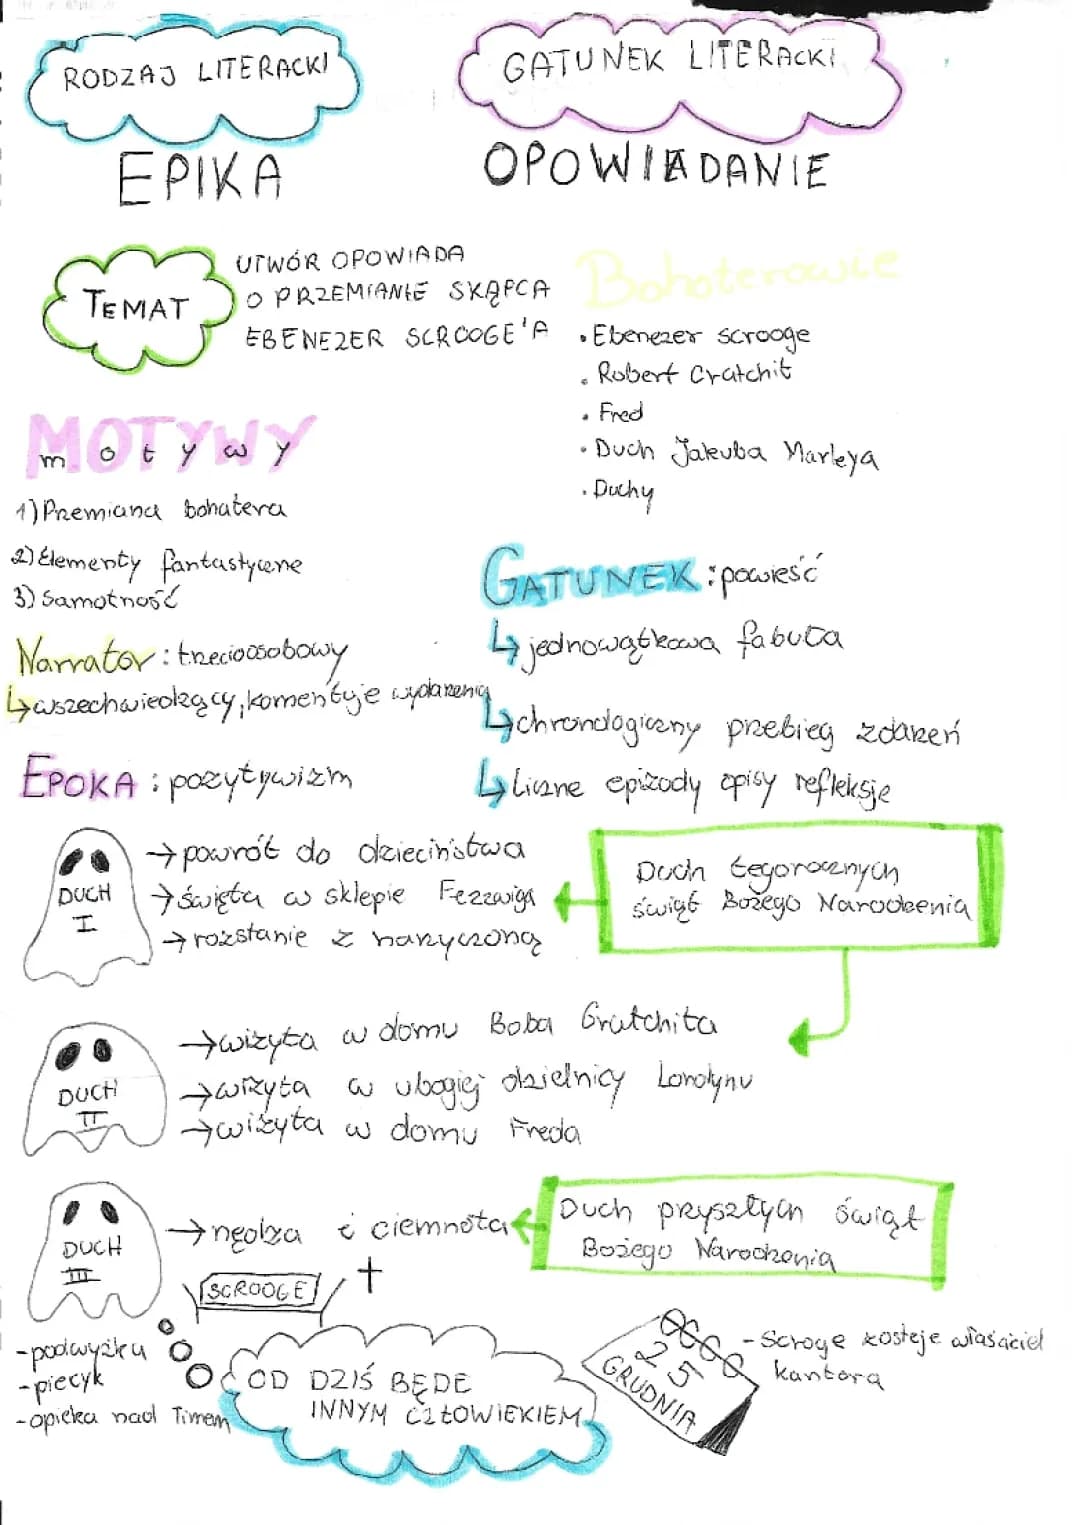 RODZAJ LITERACKI
EPIKA
GATUNEK LITERACKI
OPOWIADANIE
TEMAT
UTWÓR OPOWIADA
O PRZEMIANIE SKĄPCA
EBENEZER SCROOGE'A
Bohoterowie
• Ebenezer scrooge
• Robert Cratchit
• Fred
• Duch Jakuba Marleya
• Duchy
MOTYWY
motywy
1) Przemiana bohatera
2) Elementy fantastyczne
3) Samotność
Narrator: trzecioosobowy
↳ wszechwiedzący, komentuje wydarzenia
EPOKA: pozytywizm
GATUNEK: powieść
↳ jednowątkowa fabuła
↳ chronologiczny przebieg zdarzeń
↳ Liczne epizody opisy refleksje
DUCH
I
→ powrót do dzieciństwa
→ święta w sklepie Fezzwiga
→ rozstanie z narzyczoną
Duch tegorocznych
świąt Bożego Narodzenia
DUCH
II
→ wizyta w domu Boba Gratchita
→ wizyta w ubogiej dzielnicy Londynu
→ wizyta w domu Freda
DUCH
III
→ nędza i ciemnota
Duch przyszłych świąt
Bożego Narodzenia
+
SCROOGE
- podwyżka
- piecyk
- opieka nad Timem
OD DZIŚ BĘDE
INNYM CZŁOWIEKIEM
25
GRUDNIA
- Scroge zosteje właściciel
kantora